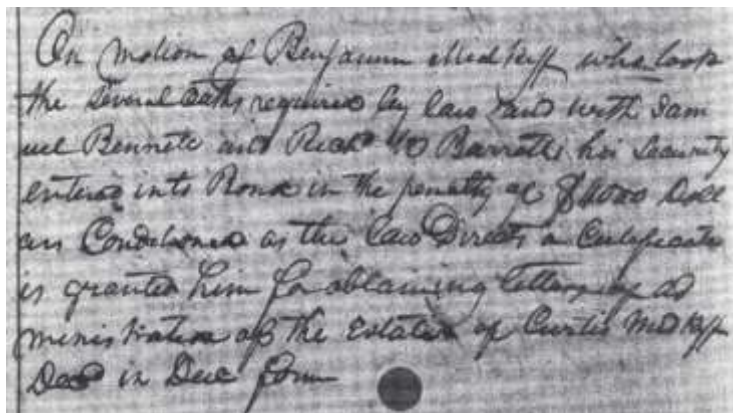 On motion of Benjamin Medkiff who took
the several oaths required by law and with Sam
uel Bennett and Richd Barrett his Security
entered into Bond in the penalty of $1000 Doll
ars Conditioned as the law Directs a Certificate
is granted him for obtaining letters of ad
ministration of the Estate of Curtis Medkiff
Decd in Due form